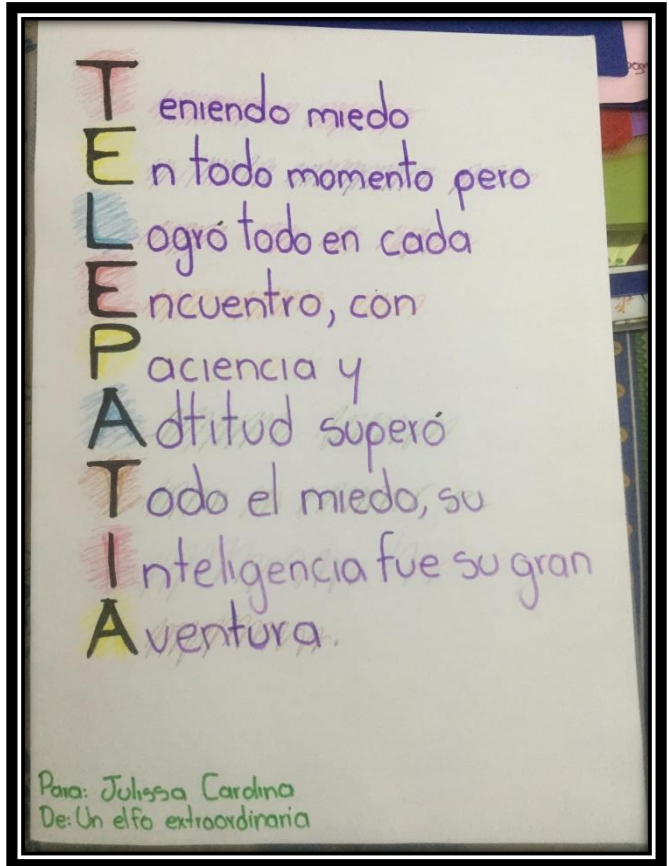 Teniendo miedo
En todo momento pero
Logró todo en cada
Encuentro, con
Paciencia y
Adtitud superó
Todo el miedo, su
Inteligencia fue su gran
Aventura.
Para: Julissa Carolina
De: Un elfo extraordinaria